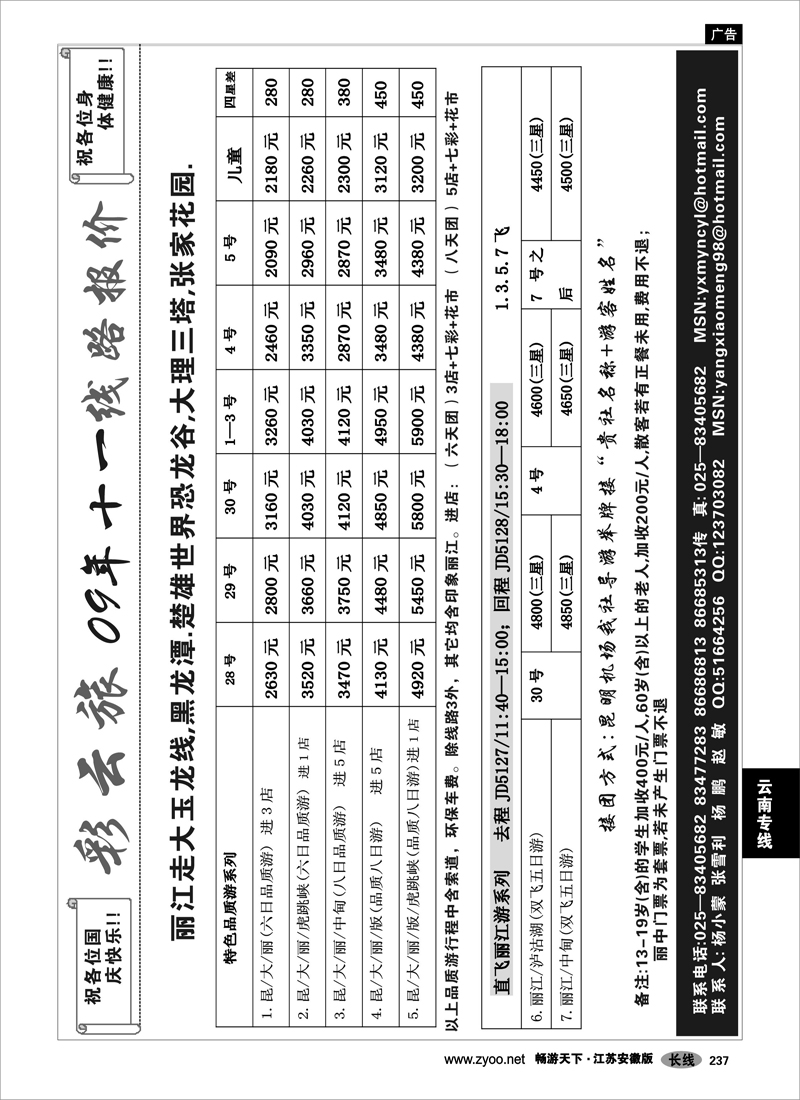 广告
祝各位国
庆快乐!!
彩云旅09年十一线路报价
祝各位身
体健康!!
丽江走大玉龙线,黑龙潭.楚雄世界恐龙谷,大理三塔,张家花园.
特色品质游系列 28 号 29 号 30 号 1—3 号 4 号 5 号 儿童 四星差
1. 昆/大/丽(六日品质游) 进 3 店 2630 元 2800 元 3160 元 3260 元 2460 元 2090 元 2180 元 280
2. 昆/大/丽/虎跳峡(六日品质游) 进 1 店 3520 元 3660 元 4030 元 4030 元 3350 元 2960 元 2260 元 280
3. 昆/大/丽/中甸(八日品质游) 进 5 店 3470 元 3750 元 4120 元 4120 元 2870 元 2870 元 2300 元 380
4. 昆/大/丽/版(品质八日游) 进 5 店 4130 元 4480 元 4850 元 4950 元 3480 元 3480 元 3120 元 450
5. 昆/大/丽/版/虎跳峡(品质八日游)进 1 店 4920 元 5450 元 5800 元 5900 元 4380 元 4380 元 3200 元 450
以上品质游行程中含索道，环保车费。除线路3外，其它均含印象丽江。进店：（六天团）3店+七彩+花市 （八天团）5店+七彩+花市
直飞丽江游系列 去程 JD5127/11:40—15:00; 回程 JD5128/15:30—18:00 1.3.5.7 飞
6. 丽江/泸沽湖(双飞五日游) 30 号 4800(三星) 4 号 4600(三星) 7 号之后 4450(三星)
7. 丽江/中甸(双飞五日游) 4850(三星) 4650(三星) 4500(三星)
接团方式:昆明机场我社导游举牌接“贵社名称+游客姓名”
备注:13-19岁(含)的学生加收400元/人,60岁(含)以上的老人,加收200元/人,散客若有正餐未用,费用不退;
丽中门票为套票,若未产生门票不退
联系电话:025—83405682 83477283 86686813 86685313传 真: 025—83405682 MSN:yxmyncyl@hotmail.com
联 系 人: 杨小蒙 张雪利 杨 鹏 赵 敏 QQ:51664256 QQ:123703082 MSN:yangxiaomeng98@hotmail.com
云南专线
www.zyoo.net 畅游天下·江苏安徽版 长线 237